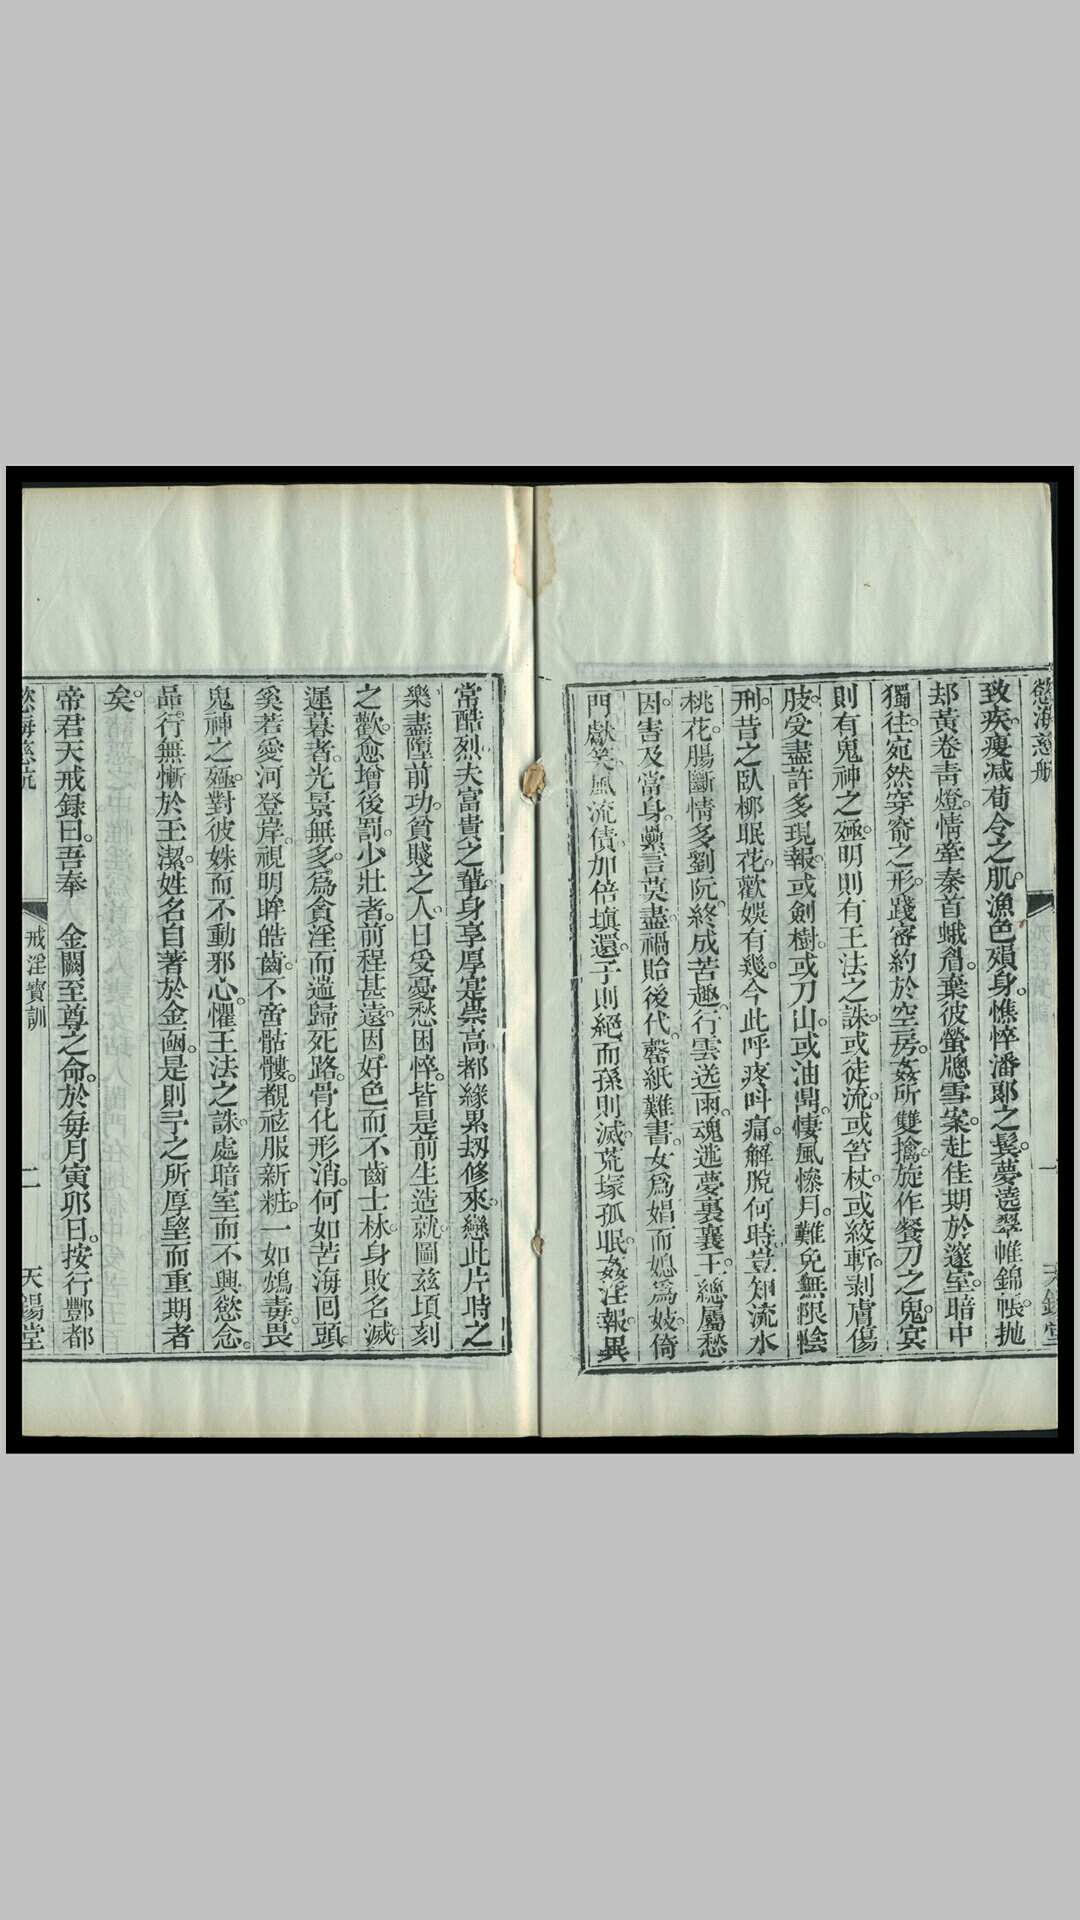 慾海慈航
一
天錫堂
致疾瘦减荀令之肌漁色殞身憔悴潘郎之鬓夢遶翠帷錦帳抛
却黃卷靑燈情牽秦首蛾眉棄彼螢牕雪案赴佳期於邃室暗中
獨往宛然穿窬之形踐密約於空房姦所雙擒旋作餐刀之鬼冥
則有鬼神之殛明則有王法之誅或徒流或笞杖或絞斬剥膚傷
肢受盡許多現報或劍樹或刀山或油鼎悽風慘月難免無限陰
刑昔之臥柳眠花歡娛有幾今此呼疼呌痛解脫何時豈知流水
桃花腸斷情多劉阮終成苦趣行雲送雨魂迷夢裏襄王總屬愁
因害及當身櫱言莫盡禍貽後代罄紙難書女爲娼而媳爲妓倚
門獻笑風流債加倍塡還子則絕而孫則滅荒塚孤眠姦淫報異
常酷烈夫富貴之輩身享厚寔祟高都緣累刼修來戀此片時之
樂盡墮前功貧賤之人日受憂愁困悴皆是前生造就圖茲頃刻
之歡愈增後罰少壯者前程甚遠因好色而不齒士林身敗名滅
遲暮者光景無多爲貪淫而遄歸死路骨化形消何如苦海囘頭
奚若愛河登岸視明眸皓齒不啻骷髏覩祛服新粧一如鴆毒畏
鬼神之殛對彼姝而不動邪心懼王法之誅處暗室而不興慾念
品行無慚於玉潔姓名自著於金凾是則予之所厚望而重期者
矣
帝君天戒録曰吾奉 金闕至尊之命於每月寅卯日按行酆都
慾海慈航
戒淫寶訓
二
天錫堂